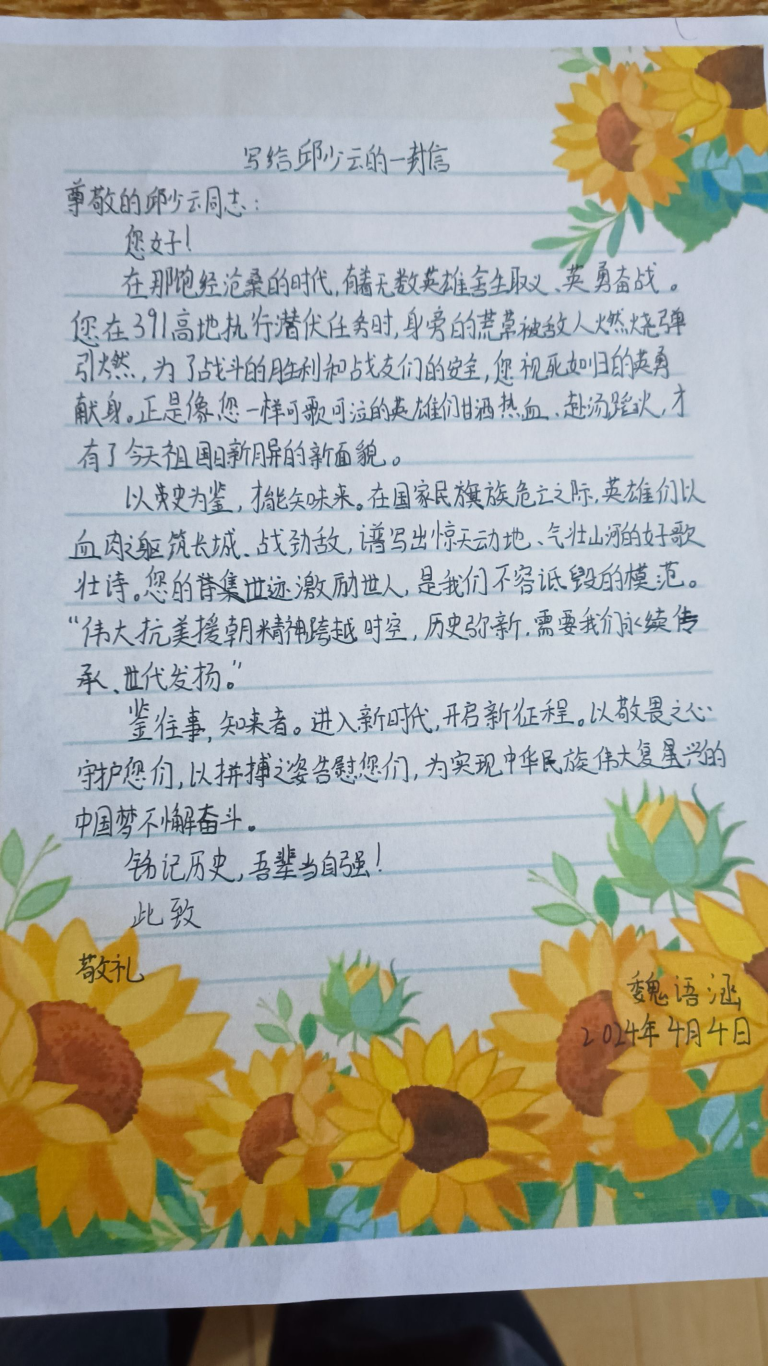 写给邱少云的一封信
尊敬的邱少云同志：
您好！
在那饱经沧桑的时代，有着无数英雄舍生取义、英勇奋战。
您在391高地执行潜伏任务时，身旁的荒草被敌人燃烧弹
引燃，为了战斗的胜利和战友们的安全，您视死如归的英勇
献身。正是像您一样可歌可泣的英雄们甘洒热血、赴汤蹈火，才
有了今天祖国日新月异的新面貌。
以史为鉴，才能知味来。在国家民族危亡之际，英雄们以
血肉之躯筑长城、战劲敌，谱写出惊天动地、气壮山河的好歌
壮诗。您的世迹激励世人，是我们不容诋毁的模范。
“伟大抗美援朝精神跨越时空，历史弥新，需要我们永续传
承、世代发扬。”
鉴往事，知来者。进入新时代，开启新征程。以敬畏之心
守护您们，以拼搏之姿告慰您们，为实现中华民族伟大复兴的
中国梦不懈奋斗。
铭记历史，吾辈当自强！
此致
敬礼
魏语涵
2024年4月4日